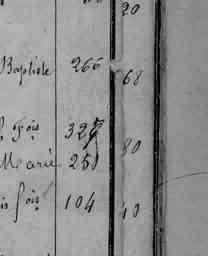 20
Baptiste 266
68
fois 327
80
Marie 251
fois 104
10